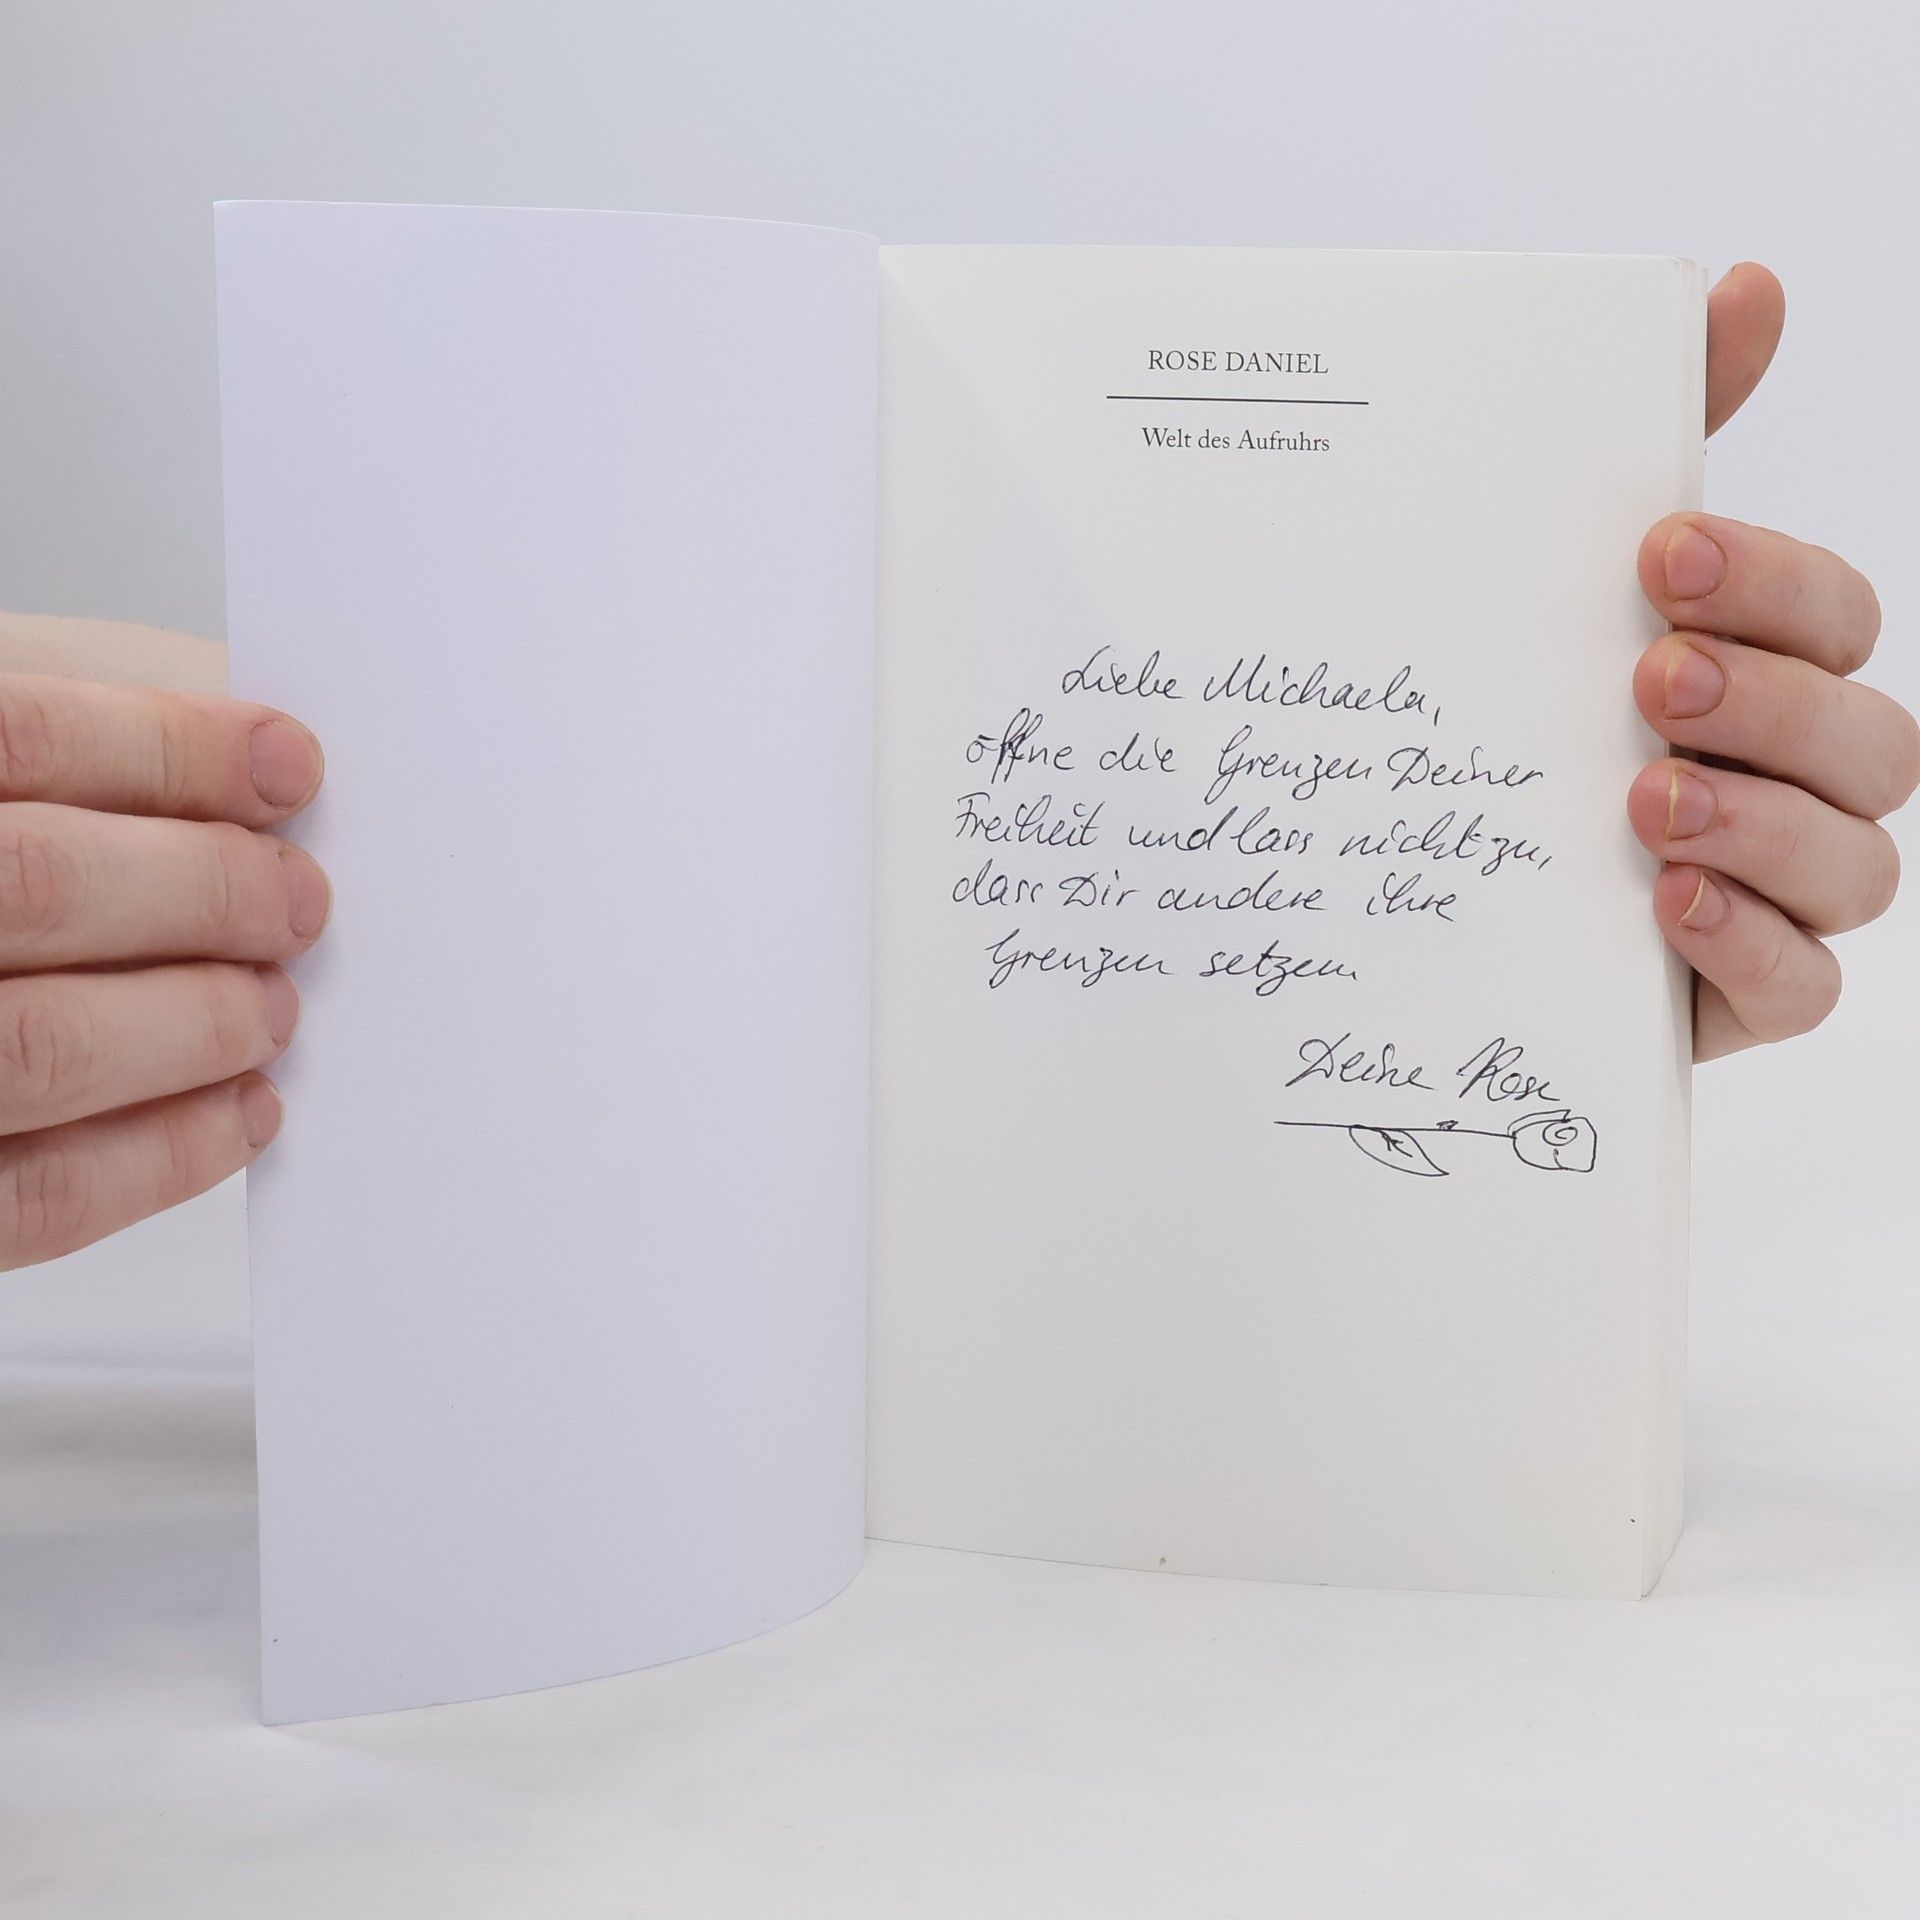 ROSE DANIEL
Welt des Aufruhrs
Liebe Michaela,
öffne die Grenzen Deiner
Freiheit und lass nicht zu,
dass Dir andere ihre
Grenzen setzen.
Deine Rose